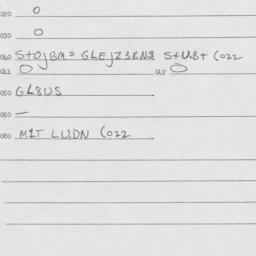 020 O
030 O
040 S+OJBM = GLEJZ3RN2 S+U.B+ (022
041 O 042 O
050 GL8US
050 —
080 M1T LU.DN (022